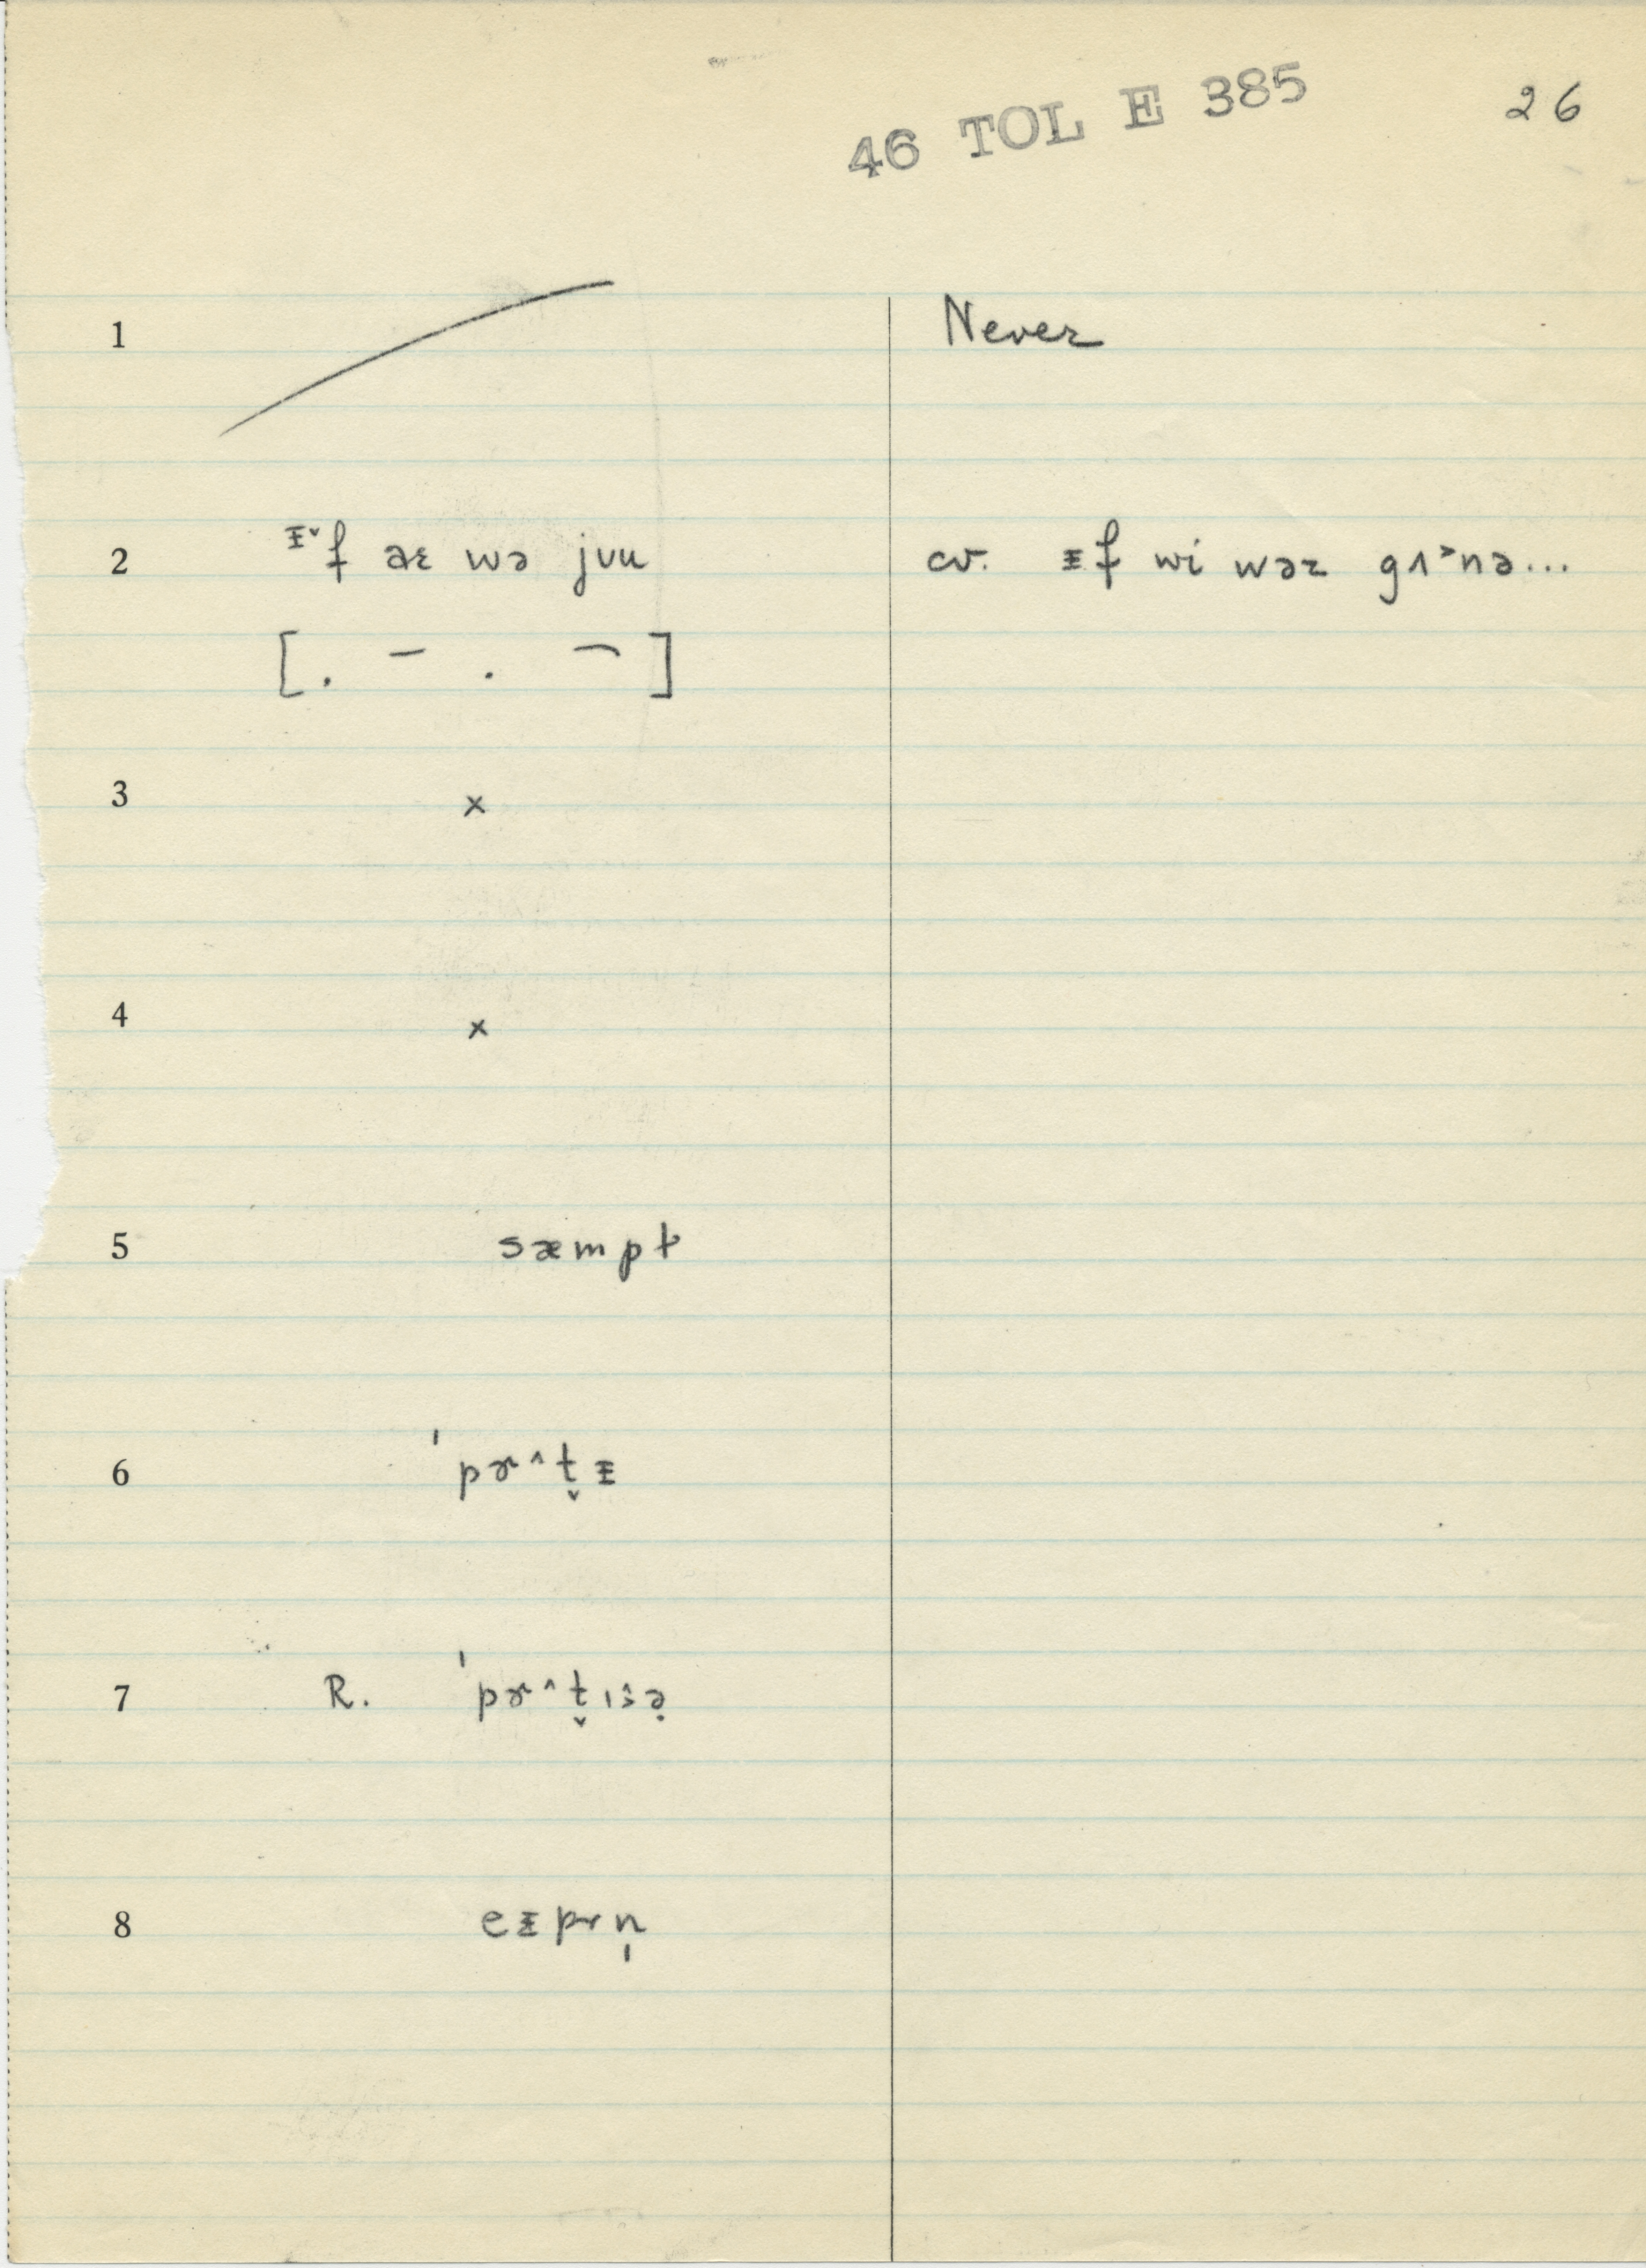 46 TOL E 385 26
1 Never
2 ᵻ˅f aɛ wə juu cv. ᵻf wi wəz gʌ˃nə...
[. – . ¬]
3 x
4 x
5 sæmpt
6 'pɚ^t̬ᵻ
7 R. 'pɚ^t̬ɪsə̣
8 eᵻprn̩